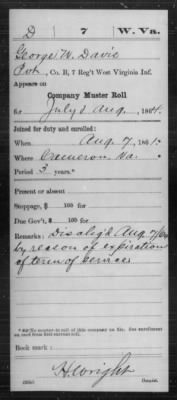 D 7 W. Va.
George W. Davis
Pvt., Co. B, 7 Reg't West Virginia Inf.
Appears on
Company Muster Roll
for July & Aug., 1864.
Joined for duty and enrolled:
When Aug. 7, 1861.*
Where Cameron Va. *
Period 3 years.*
Present or absent
Stoppage, $ 100 for
Due Gov't, $ 100 for
Remarks: Disch'd Aug. 7/64
by reason of expiration
of term of service
Book mark:
H. Wright
Copyist.